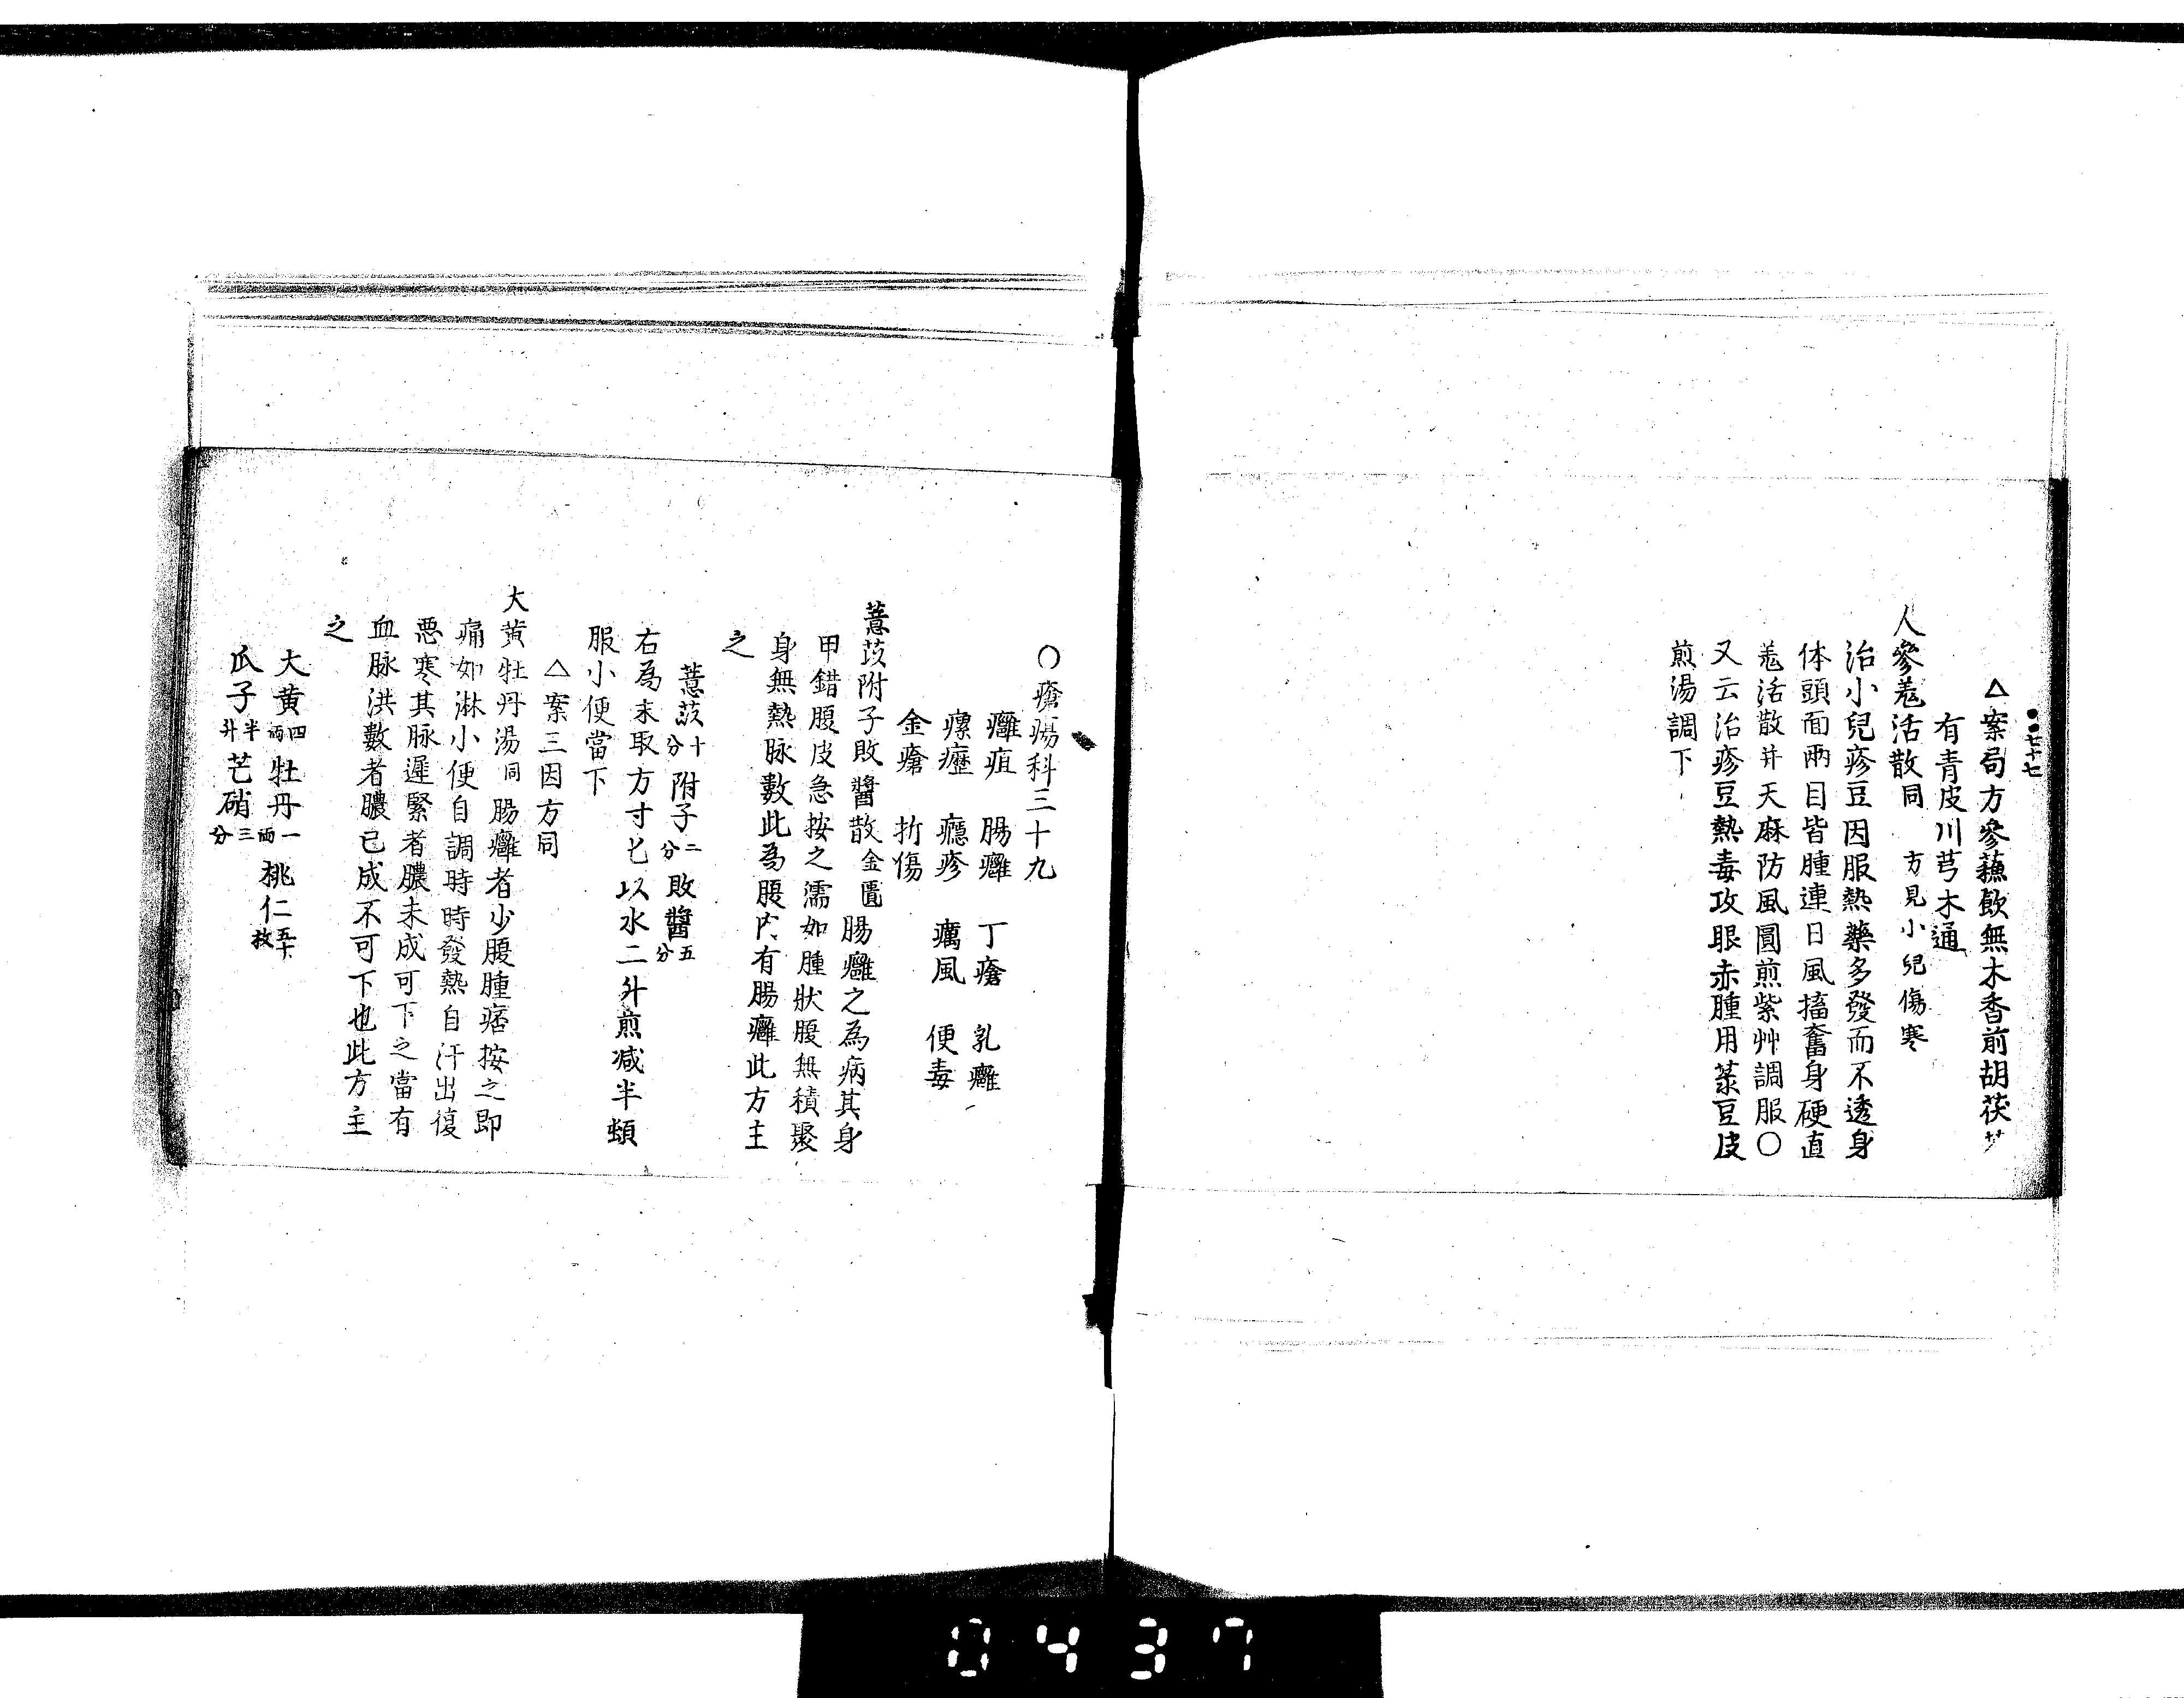 七十七
△案局方參蘓飲無木香前胡茯苓
有青皮川芎木通
人參羗活散同　方見小兒傷寒
治小兒疹豆因服熱藥多發而不透身
体頭面兩目皆腫連日風搐奮身硬直
羗活散并天麻防風圓煎紫艸調服〇
又云治疹豆熱毒攻眼赤腫用菉豆皮
煎湯調下
〇瘡瘍科三十九
癰疽　腸癰　丁瘡　乳癰
瘰癧　癮疹　癘風　便毒
金瘡　折傷
薏苡附子敗醬散金匱　腸癰之為病其身
甲錯腹皮急按之濡如腫狀腹無積聚
身無熱脉數此為腹内有腸癰此方主
之
薏苡十分附子二分敗醬五分
右為末取方寸匕以水二升煎减半頓
服小便當下
△案三因方同
大黄牡丹湯同　腸癰者少腹腫痞按之即
痛如淋小便自調時時發熱自汗出復
悪寒其脉遲緊者膿未成可下之當有
血脉洪數者膿已成不可下也此方主
之
大黄四両牡丹一両桃仁五十枚
瓜子半升芒硝三分
0437